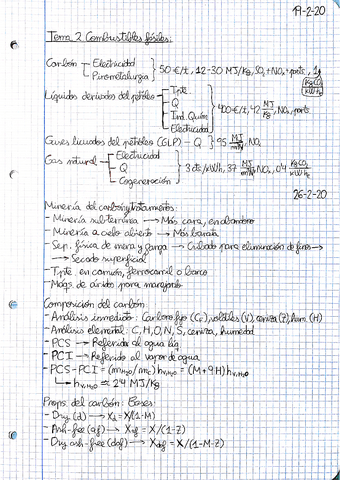 19-2-20
Tema 2 Combustibles fósiles:
Carbón — Electricidad
— Pirometalurgia } 50 €/t, 12-30 MJ/kg, SO₂+NOx+parts., 1 kgCO₂/kWhe
Líquidos derivados del petróleo — Tpte
— Q
— Ind. Quím
— Electricidad } 400 €/t, 42 MJ/kg, NOx, parts
Gases licuados del petróleo (GLP) – Q } 95 MJ/m³N, NOx
Gas natural — Electricidad
— Q
— Cogeneración } 3 cts/kWh, 37 MJ/m³N, NOx, 0'4 kgCO₂/kWhe
26-2-20
Minería del carbón y tratamientos:
- Minería subterránea → Más cara, en abombro
- Minería a cielo abierto → Más barata
- Sep. física de mena y ganga → Cribado para eliminación de finos →
→ Secado superficial
- Tpte en camión, ferrocarril o barco
- Máqs. de árido para manejarlo
Composición del carbón:
- Análisis inmediato: Carbono fijo (CF), volátiles (V), ceniza (Z), hum. (H)
- Análisis elemental: C, H, O, N, S, ceniza, humedad
- PCS → Referido al agua líq
- PCI → Referido al vapor de agua
- PCS-PCI = (mH₂O/mc) hv,H₂O = (M+9H) hv,H₂O
↳ hv,H₂O ≃ 2'4 MJ/kg
Props. del carbón: Bases:
- Dry (d) → Xd = X/(1-M)
- Ash-free (af) → Xaf = X/(1-Z)
- Dry ash-free (daf) → Xdaf = X/(1-M-Z)